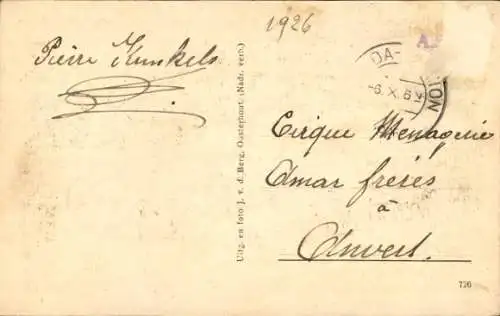 1926
Pierre Kunkels
Uitg. en foto J. v. d. Berg, Oosterhout. (Nadr. verb.)
DA-
-6.X.6
NOI
A.
Cirque Menagerie
Amar frères
à
Anvers.